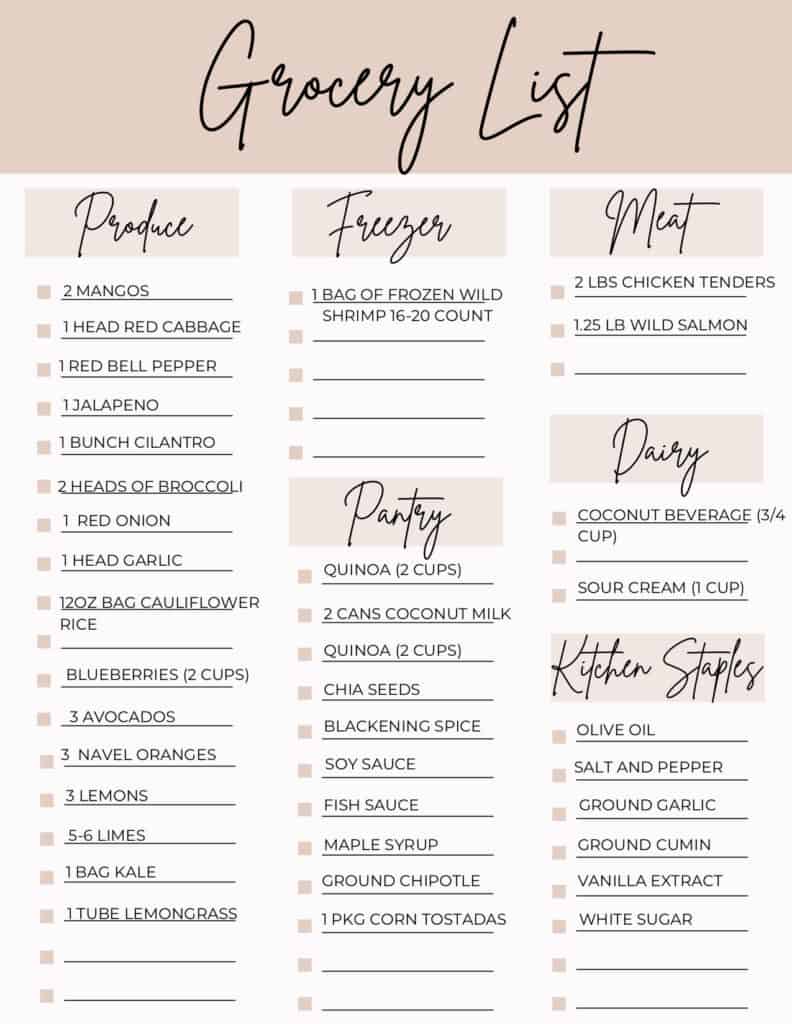 Grocery List
Produce
2 MANGOS
1 HEAD RED CABBAGE
1 RED BELL PEPPER
1 JALAPENO
1 BUNCH CILANTRO
2 HEADS OF BROCCOLI
1 RED ONION
1 HEAD GARLIC
12OZ BAG CAULIFLOWER
RICE
BLUEBERRIES (2 CUPS)
3 AVOCADOS
3 NAVEL ORANGES
3 LEMONS
5-6 LIMES
1 BAG KALE
1 TUBE LEMONGRASS
Freezer
1 BAG OF FROZEN WILD
SHRIMP 16-20 COUNT
Pantry
QUINOA (2 CUPS)
2 CANS COCONUT MILK
QUINOA (2 CUPS)
CHIA SEEDS
BLACKENING SPICE
SOY SAUCE
FISH SAUCE
MAPLE SYRUP
GROUND CHIPOTLE
1 PKG CORN TOSTADAS
Meat
2 LBS CHICKEN TENDERS
1.25 LB WILD SALMON
Dairy
COCONUT BEVERAGE (3/4
CUP)
SOUR CREAM (1 CUP)
Kitchen Staples
OLIVE OIL
SALT AND PEPPER
GROUND GARLIC
GROUND CUMIN
VANILLA EXTRACT
WHITE SUGAR